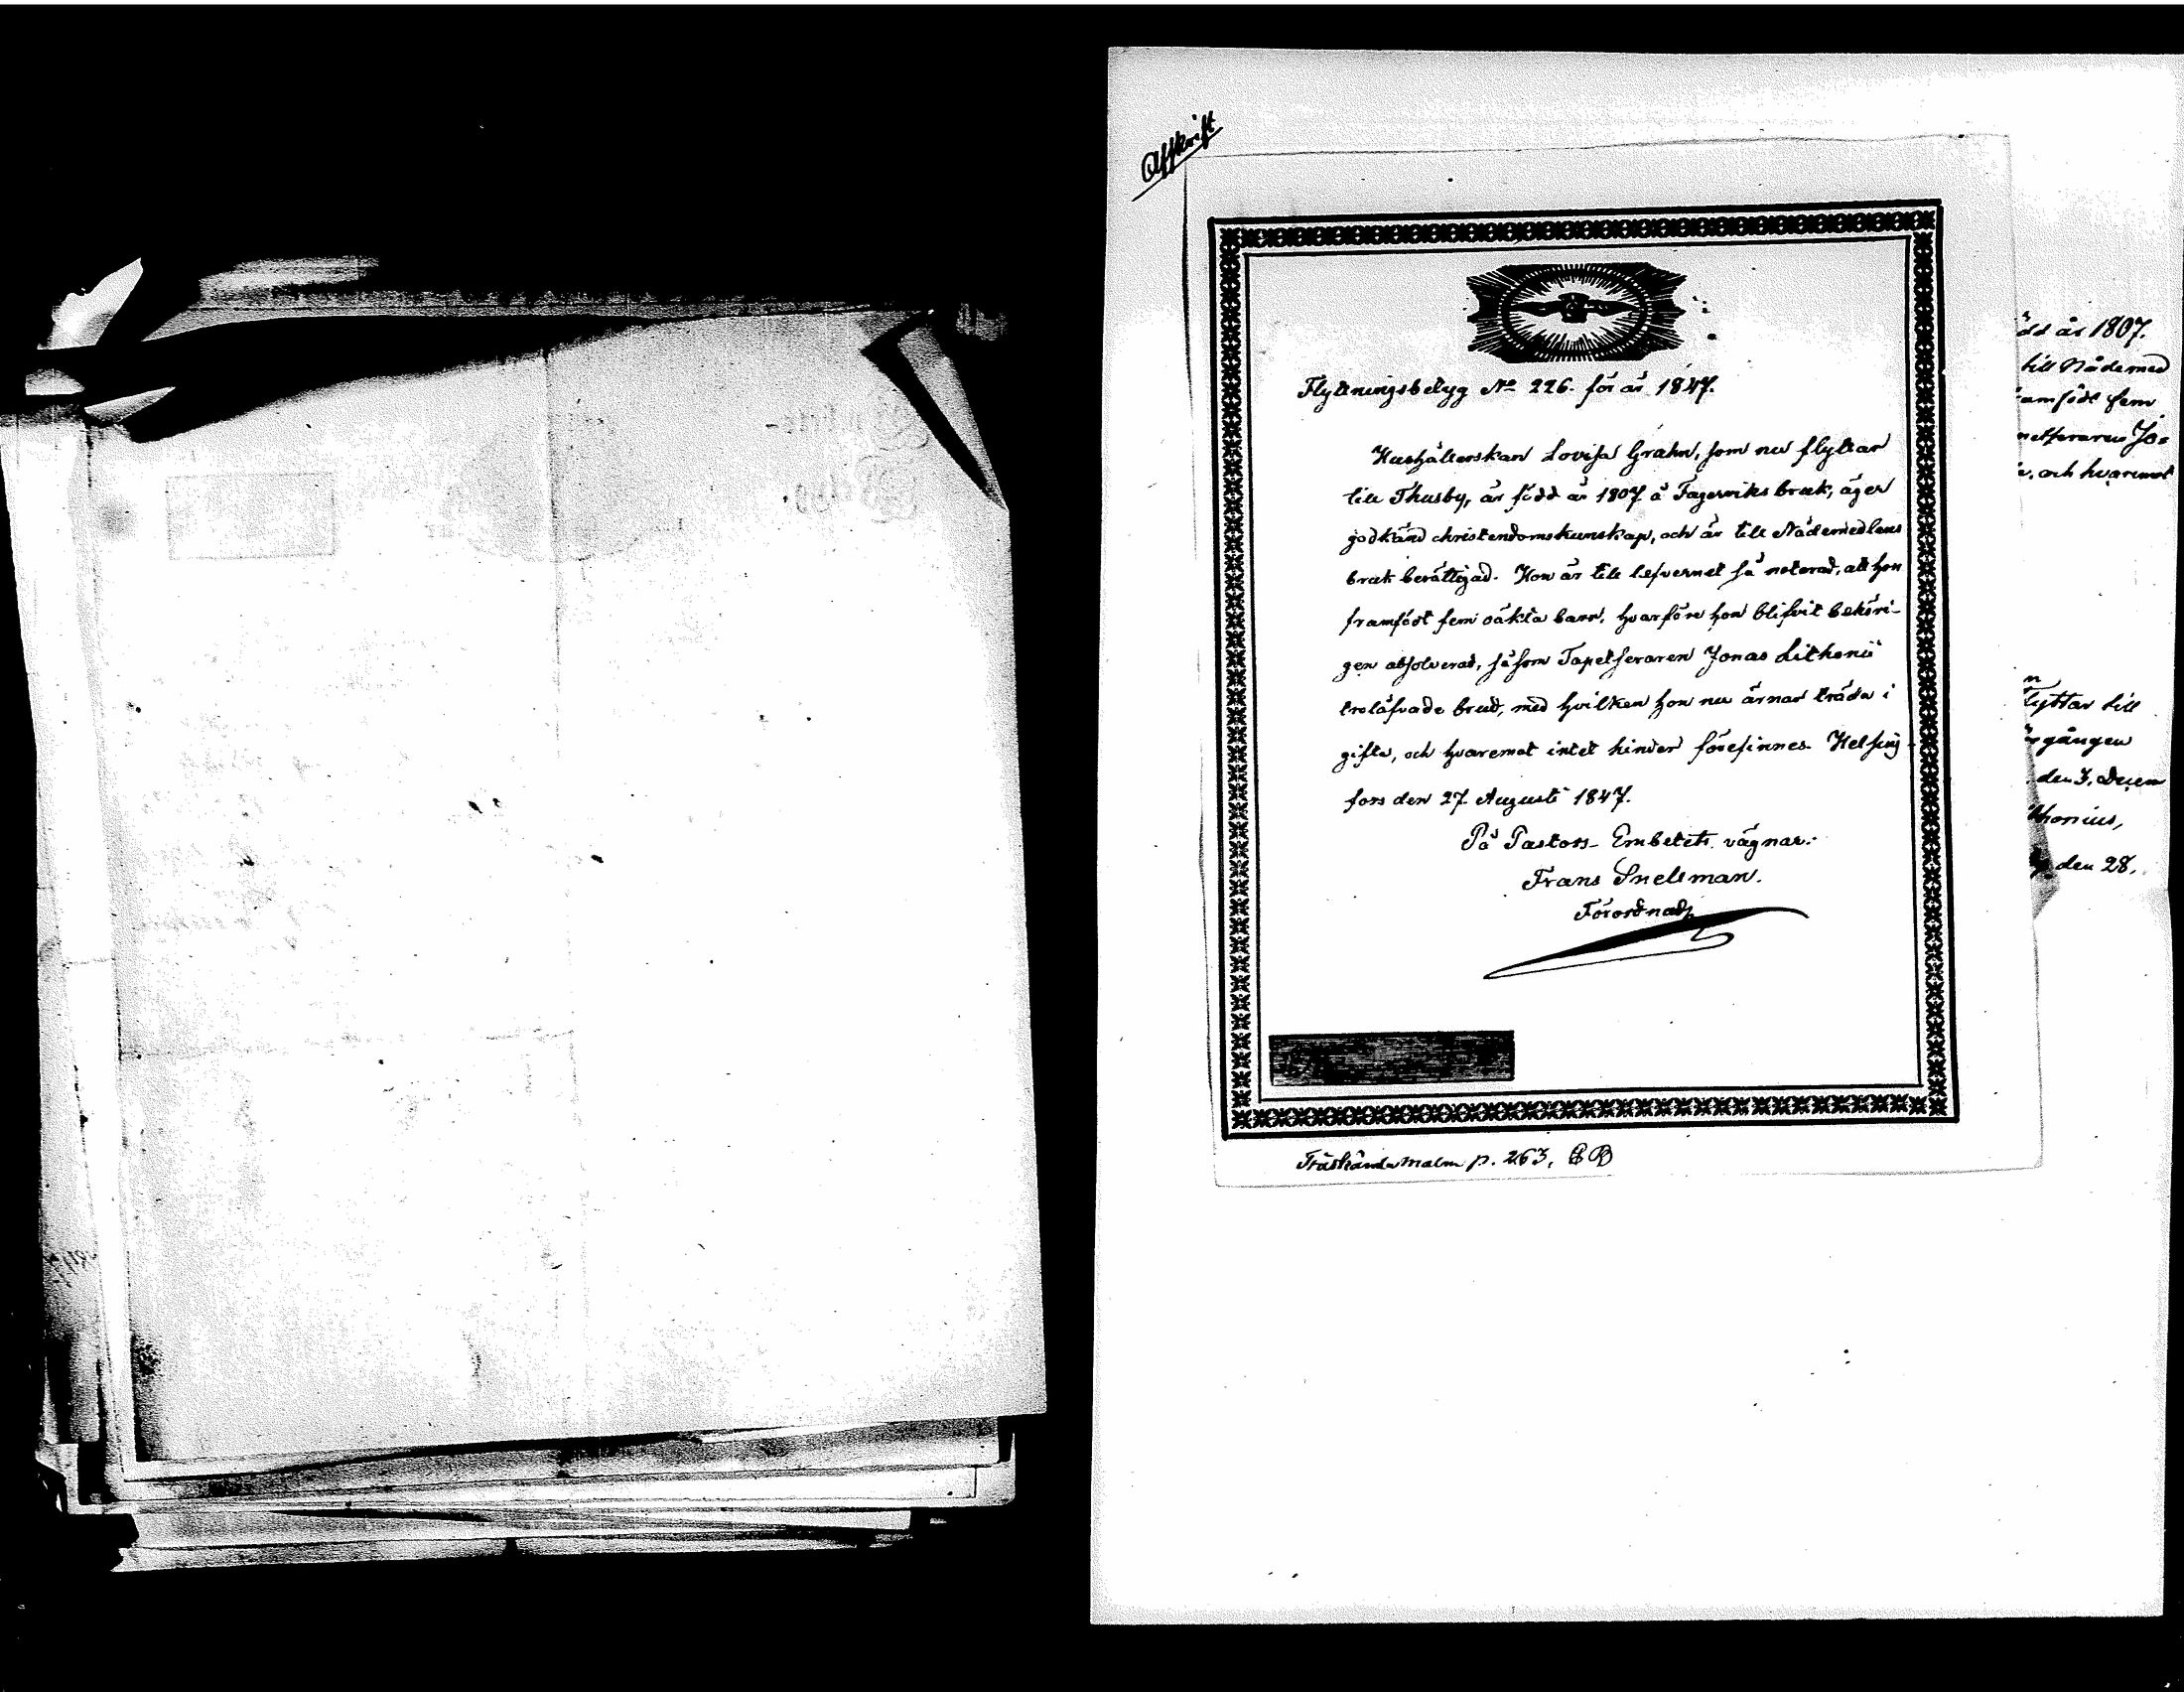 Afskrift
Flyttningsbetyg No 226. för år 1847.
Hushållerskan Lovisa Grahn, som nu flyttar
till Thusby, är född år 1807 å Fagerviks bruk, äger
godkänd christendomskunskap, och är till Nådemedlens
bruk berättigad. Hon är till lefvernet så noterad, att hon
framfödt fem oäkta barn, hvarföre hon blifvit behöri-
gen absolverad, såsom Tapetseraren Jonas Lithonii
trolåfvade brud, med hvilken hon nu ärnar träda i
gifte, och hvaremot intet hinder förefinnes. Helsing-
fors den 27 Augusti 1847.
På Pastors-Embetets vägnar:
Frans Snelsman.
Förordnad
Träskända malm p. 263.
är 1807.
till Nådemed
amfödt fem
Jo=
och hvaremot
flyttar till
gången
den 3. Decem
thonius,
den 28.